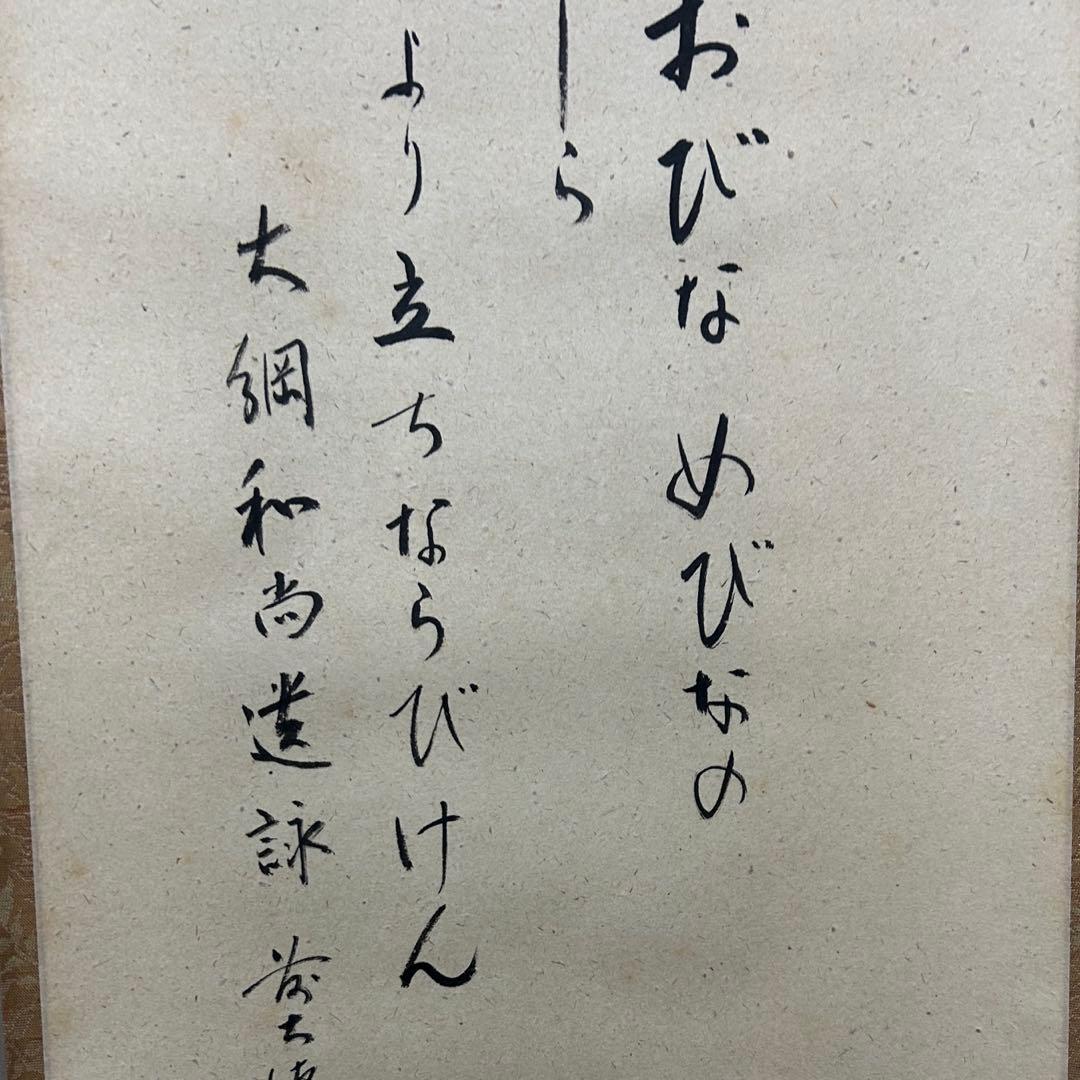 おびな めびなの
ら
より 立ちならびけん
大綱和尚遺詠 前大徳